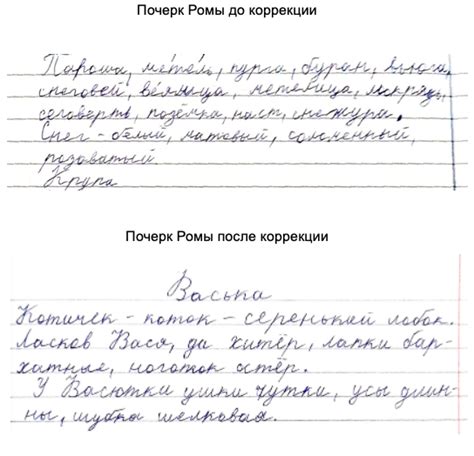 Почерк Ромы до коррекции
Пароша, метель, пурга, буран, вьюга,
снеговей, веялица, метелица, мокрядь,
сеговерть, позёмка, наст, снежура.
Снег - белый, матовый, соломенный,
розоватый.
Крупа
Почерк Ромы после коррекции
Васька
Котичек - коток - серенький лобок.
Ласков Вася, да хитёр, лапки бар-
хатные, ноготок остёр.
У Васютки ушки чутки, усы длин-
ны, шубка шелковая.